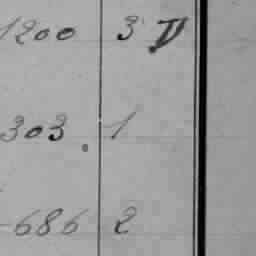 1200 3 V
303. 1
686 2